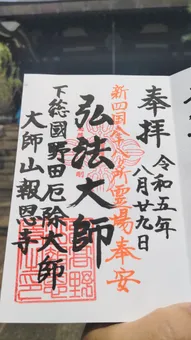 奉拝
令和五年
八月廿九日
新四国 所霊場奉安
弘法大師
下総國野田厄除大師
大師山報恩寺